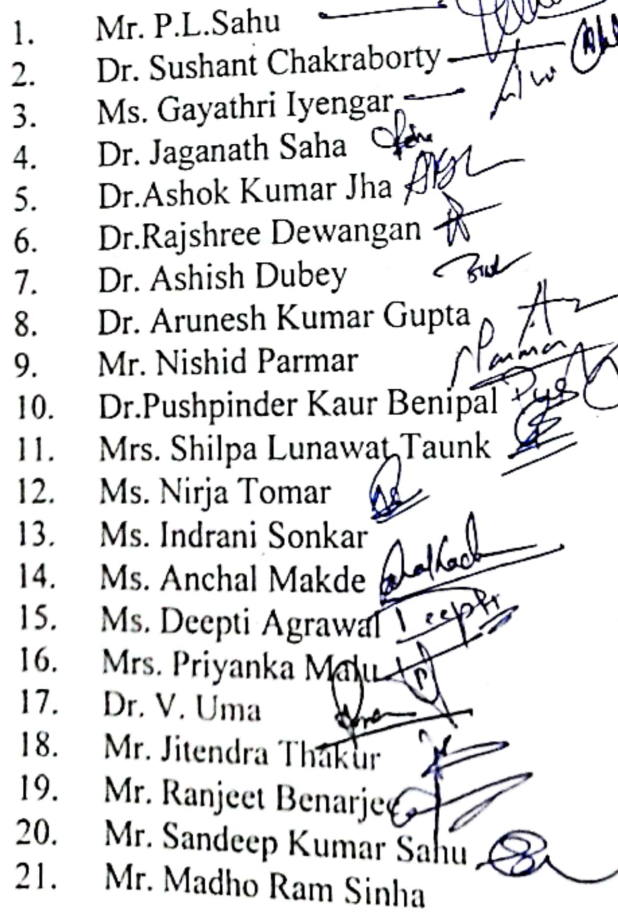 1. Mr. P.L.Sahu
2. Dr. Sushant Chakraborty
3. Ms. Gayathri Iyengar
4. Dr. Jaganath Saha
5. Dr.Ashok Kumar Jha
6. Dr.Rajshree Dewangan
7. Dr. Ashish Dubey
8. Dr. Arunesh Kumar Gupta
9. Mr. Nishid Parmar Parmar
10. Dr.Pushpinder Kaur Benipal
11. Mrs. Shilpa Lunawat Taunk
12. Ms. Nirja Tomar
13. Ms. Indrani Sonkar
14. Ms. Anchal Makde
15. Ms. Deepti Agrawal Deepti
16. Mrs. Priyanka Malu
17. Dr. V. Uma
18. Mr. Jitendra Thakur
19. Mr. Ranjeet Benarjee
20. Mr. Sandeep Kumar Sahu
21. Mr. Madho Ram Sinha